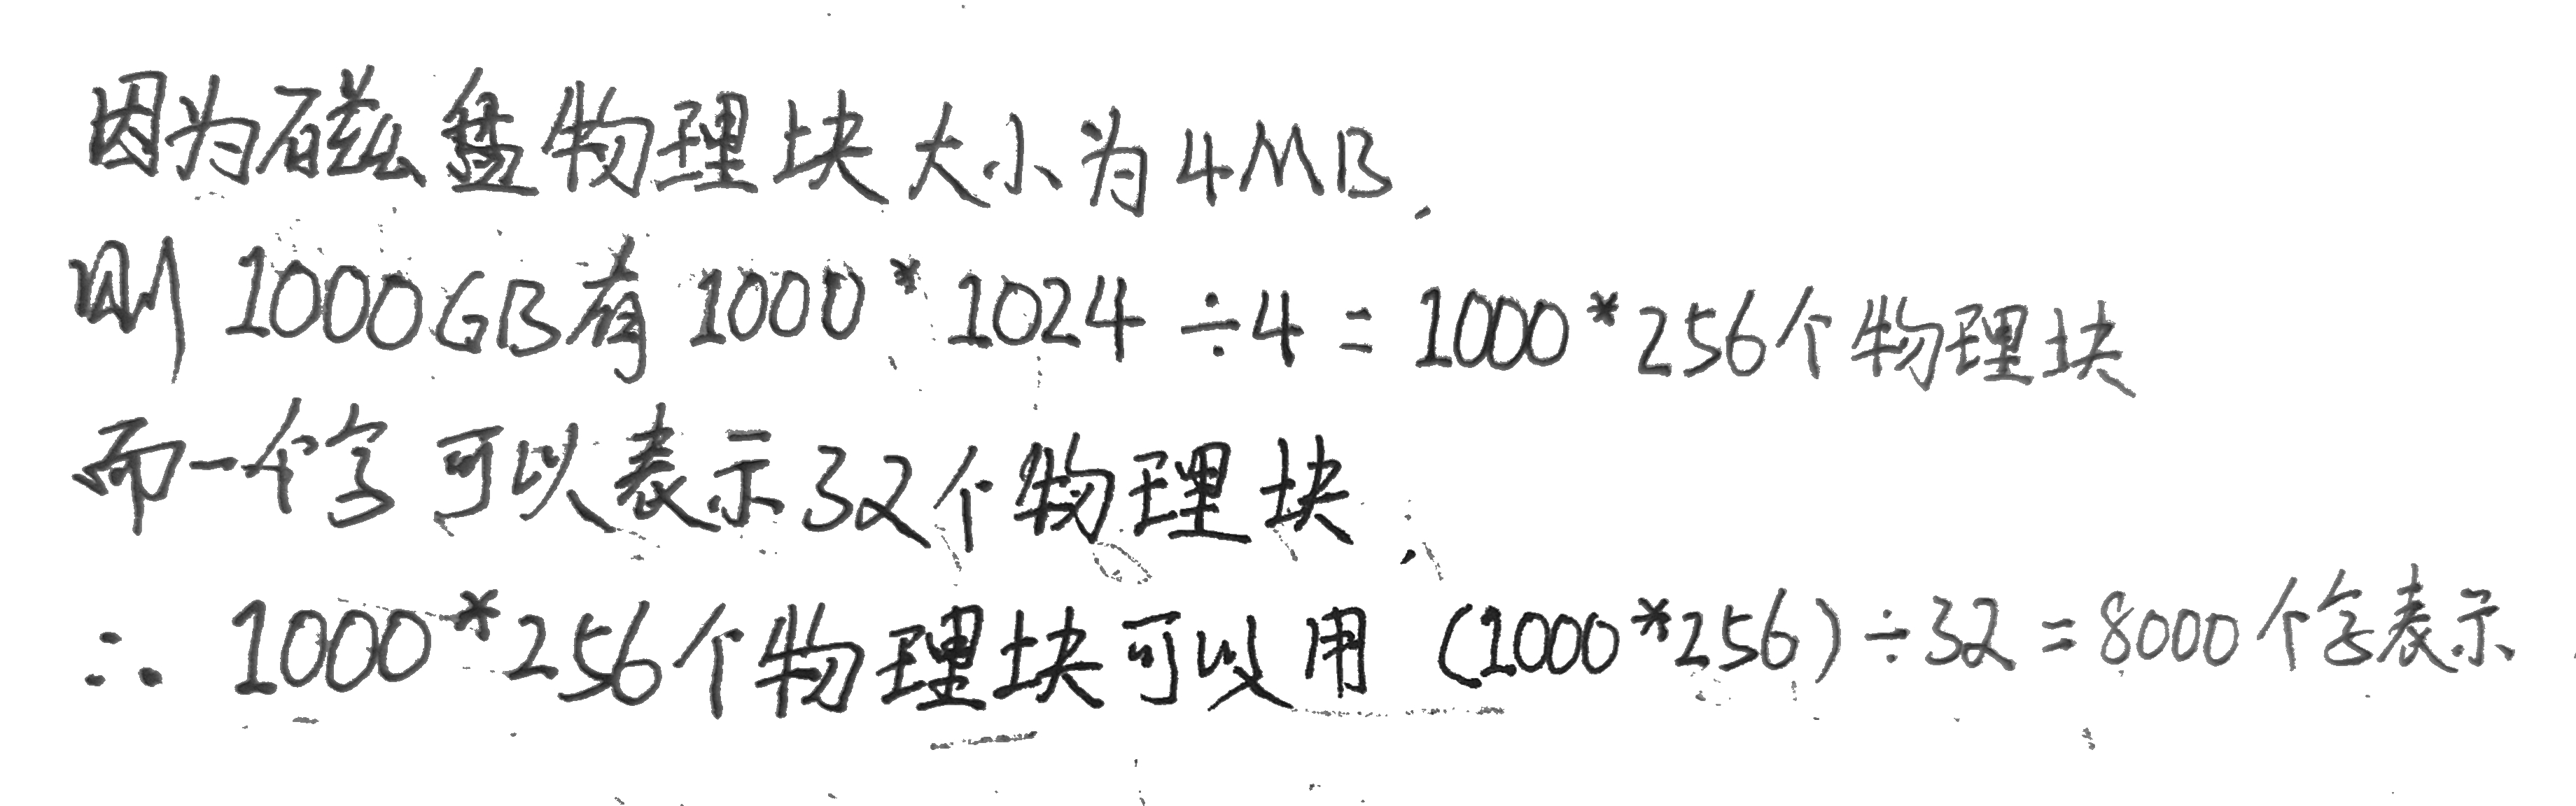 因为磁盘物理块大小为4MB,
则1000GB有1000*1024÷4=1000*256个物理块
而一个字可以表示32个物理块,
∴1000*256个物理块可以用(1000*256)÷32=8000个字表示